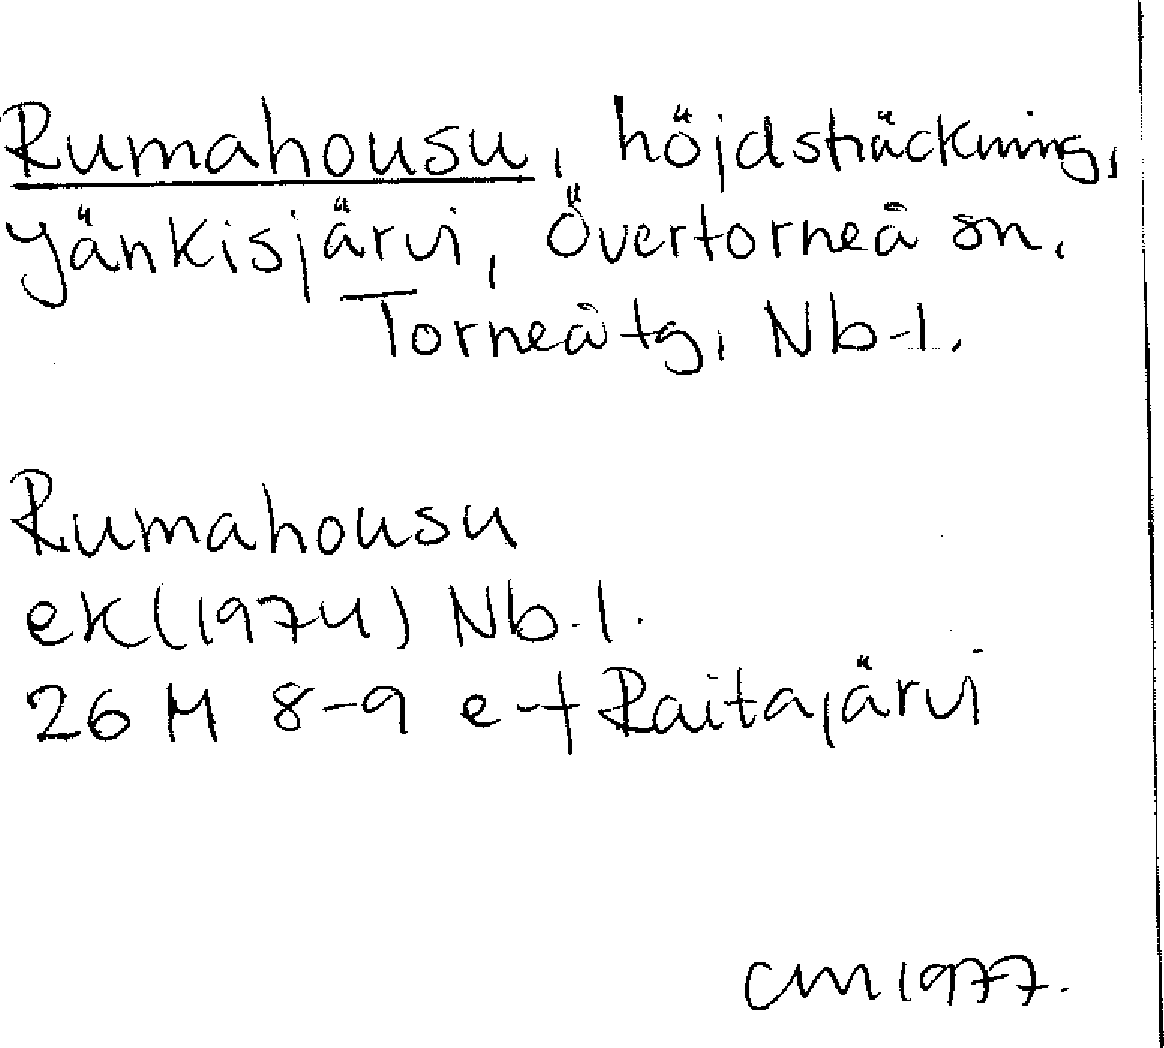 Rumahousu, höjdsträckning,
Jänkisjärvi, Övertorneå sn,
Torneå tg, Nb-l.
Rumahousu
ek (1974) Nb.l.
26 M 8-9 e-f Raitajärvi
CM 1977.